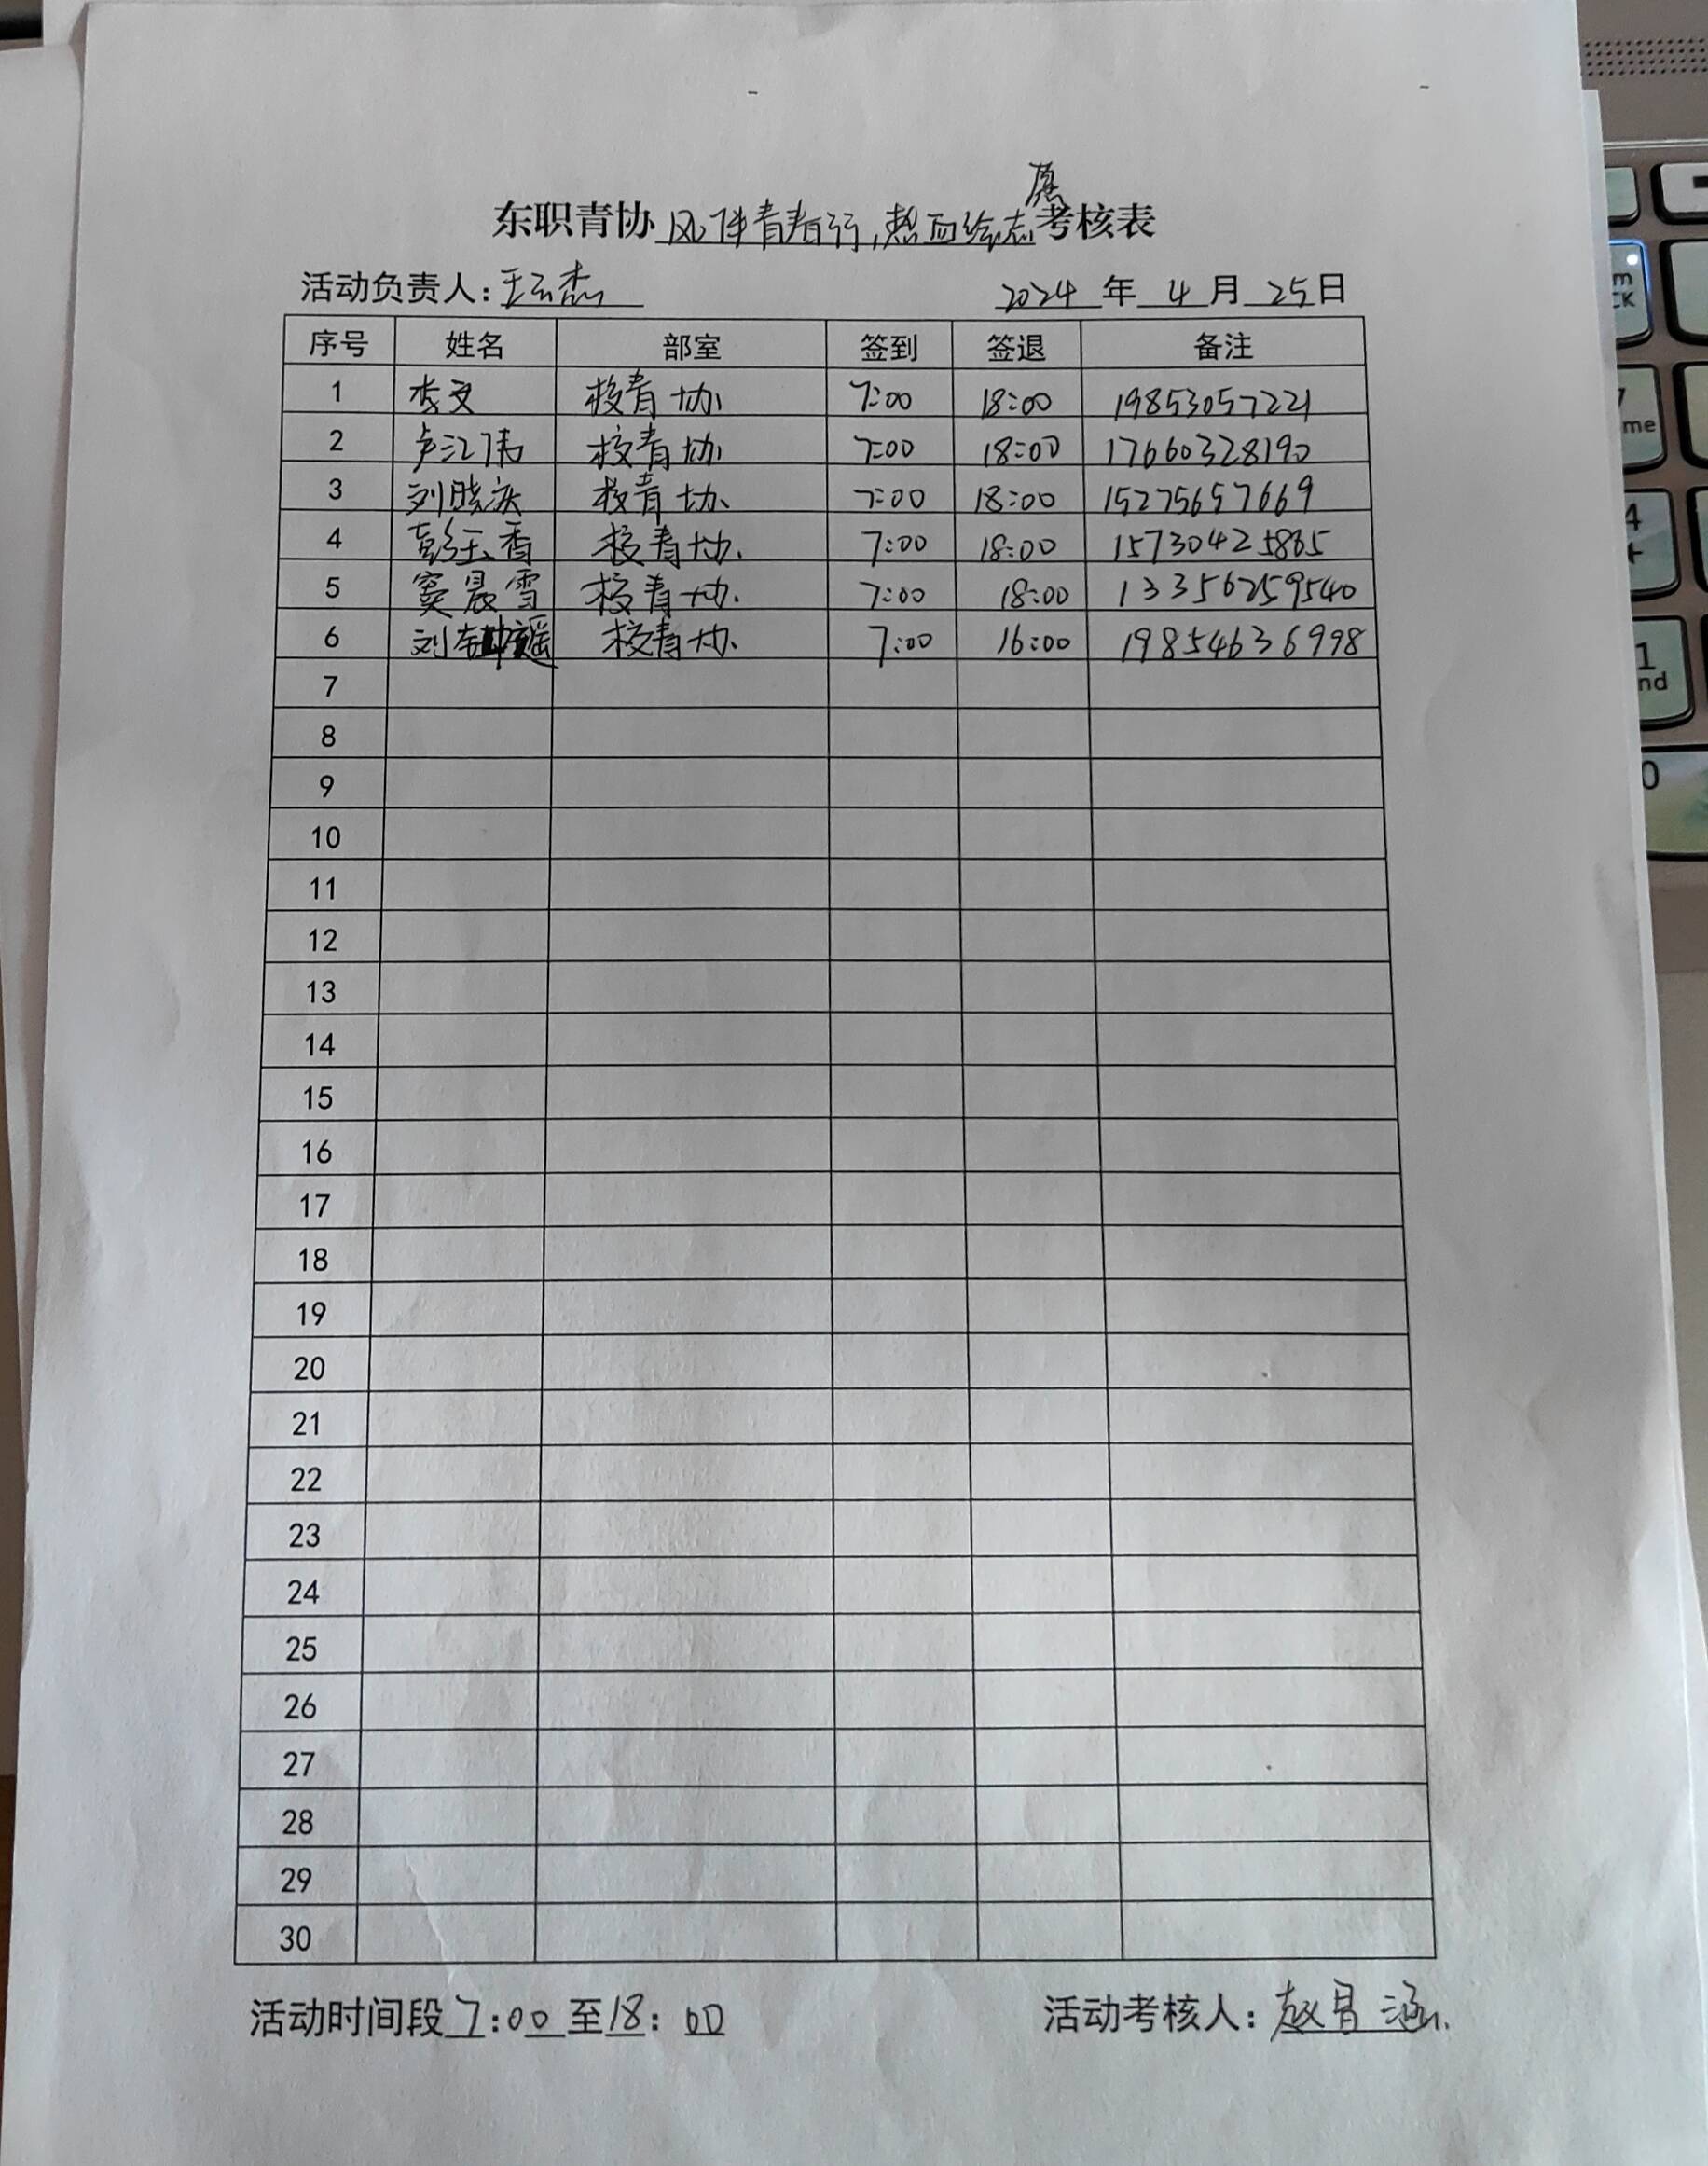 东职青协风伴青春行,热血绘志愿考核表
活动负责人:王云杰 2024年4月25日
序号 姓名 部室 签到 签退 备注
1 李文 校青协 7:00 18:00 19853057221
2 卢江伟 校青协 7:00 18:00 17660328190
3 刘晓庆 校青协 7:00 18:00 15275657669
4 彭玉香 校青协. 7:00 18:00 15730425865
5 窦晨雪 校青协. 7:00 18:00 13356259540
6 刘 瑶 校青协 7:00 16:00 19854636998
7
8
9
10
11
12
13
14
15
16
17
18
19
20
21
22
23
24
25
26
27
28
29
30
活动时间段7:00至18:00 活动考核人:赵昌涵.